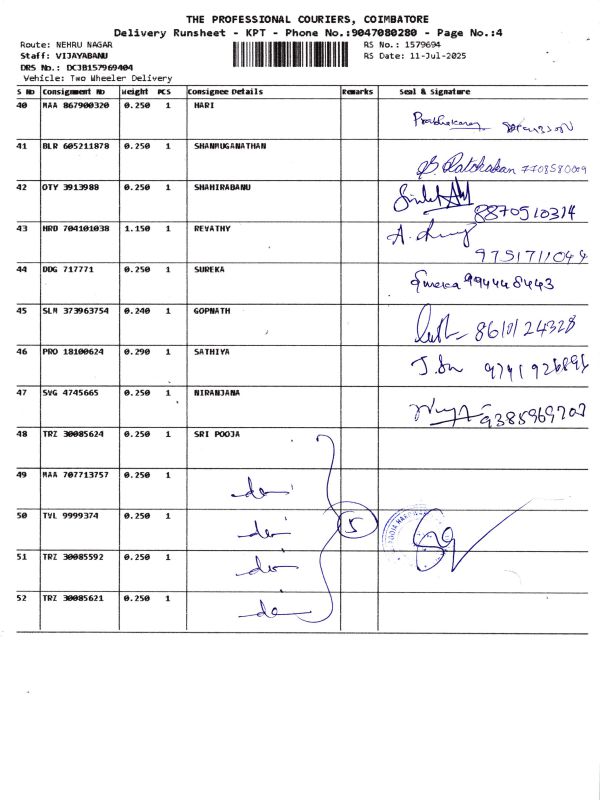 THE PROFESSIONAL COURIERS, COIMBATORE
Delivery Runsheet - KPT - Phone No.:9047080280 - Page No.:4
Route: NEHRU NAGAR RS No.: 1579694
Staff: VIJAYABANU RS Date: 11-Jul-2025
DRS No.: DCJB157969404
Vehicle: Two Wheeler Delivery
S No Consignment No Weight PCS Consignee Details Remarks Seal & Signature
40 MAA 867900320 0.250 1 HARI
41 BLR 605211878 0.250 1 SHANMUGANATHAN 7708580009
42 OTY 3913988 0.250 1 SHAHIRABANU 8870510314
43 HRD 704101038 1.150 1 REVATHY 9751711044
44 DDG 717771 0.250 1 SUREKA Sureka 994448443
45 SLM 373963754 0.240 1 GOPNATH 8610124328
46 PRO 18100624 0.290 1 SATHIYA 9791926896
47 SVG 4745665 0.250 1 NIRANJANA 9385969707
48 TRZ 30085624 0.250 1 SRI POOJA
49 MAA 707713757 0.250 1
50 TVL 9999374 0.250 1 5
51 TRZ 30085592 0.250 1
52 TRZ 30085621 0.250 1